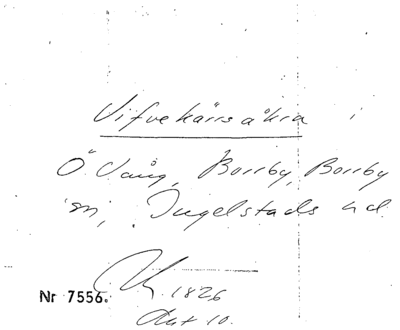 Vifvekärrsåkra i
Ö Vång, Borrby, Borrby
sn, Ingelstads hd.
1826
Akt 10.
Nr 7556.